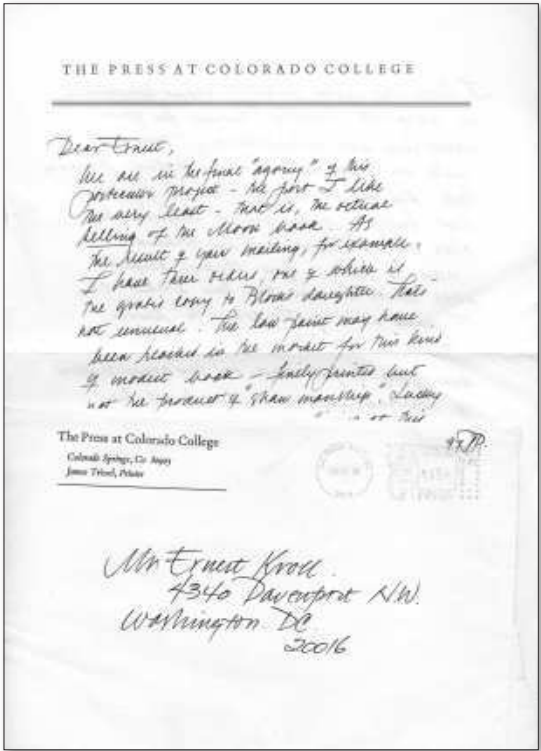 THE PRESS AT COLORADO COLLEGE
Dear Ernest,
We are in the final "agony" of this
particular project – the part I like
the very least – that is, the actual
selling of the Moon book. As
the result of your mailing, for example,
I have three orders, one of which is
the gratis copy to Bloch's daughter. That's
not unusual. The low point may have
been reached in the market for this kind
of modest book – finely printed but
not the product of "showmanship". Luckily
The Press at Colorado College
Colorado Springs, Co 80903
James Trissel, Printer
Mr Ernest Kroll
4340 Davenport N.W.
Washington DC
20016